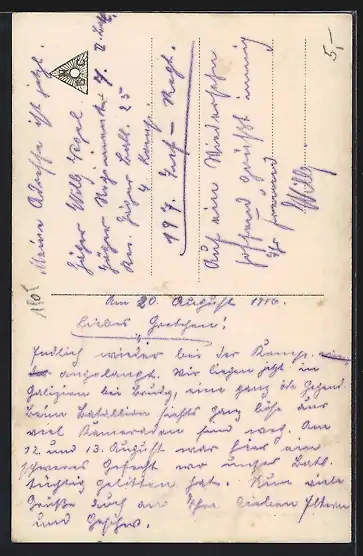 Am 20. August 1916.
Liebes Gretchen!
Endlich wieder bei der Komp.
angelangt. Wir liegen jetzt in
Galizien bei Brody, eine ganz öde Gegend.
Beim Bataillon siehts ganz böse aus
viel Kameraden sind weg. Am
12. und 13. August war hier ein
schweres Gefecht wo unser Batl.
tüchtig gelitten hat. Nun viele
Grüße auch an Ihre lieben Eltern
und Geschw.
Meine Adresse ist jetzt.
Jäger Willy
Jäger Regiment
Res. Jäger Batl. 25
4 Komp.
197. Inf-Regt.
Auf ein Wiedersehn
hoffend grüßt innig
Ihr Freund
Willy.
5,-